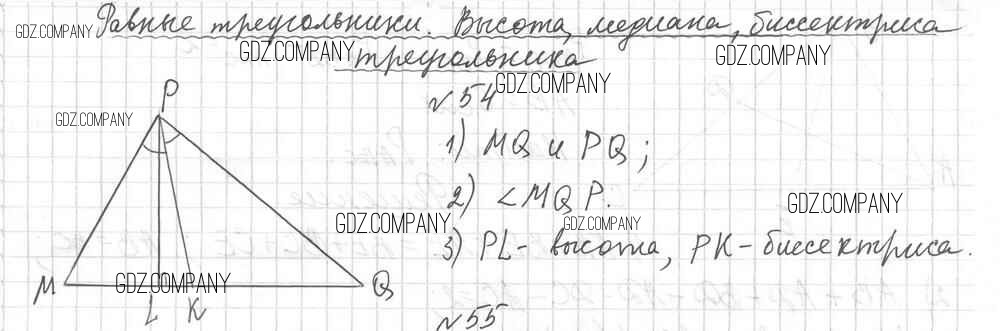 Равные треугольники. Высота, медиана, биссектриса
треугольника
GDZ.COMPANY
GDZ.COMPANY
GDZ.COMPANY
GDZ.COMPANY
№54
P
GDZ.COMPANY
1) MQ и PQ;
2) ∠MQP.
GDZ.COMPANY
GDZ.COMPANY
GDZ.COMPANY
3) PL - высота, PK - биссектриса.
M
GDZ.COMPANY
Q
L K
№55